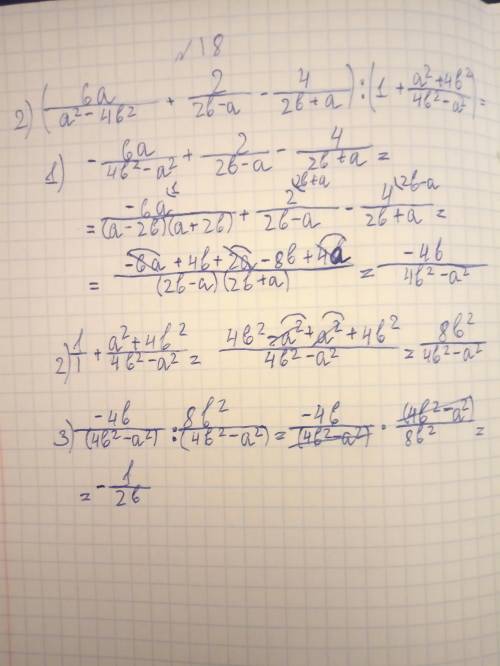 №18
2) (6a/(a²-4b²) + 2/(2b-a) - 4/(2b+a)) : (1 + (a²+4b²)/(4b²-a²)) =
1) -6a/(4b²-a²) + 2/(2b-a) - 4/(2b+a) =
= -6a\1/((a-2b)(a+2b)) + 2\2b+a/(2b-a) - 4\2b-a/(2b+a) =
= (-6a+4b+2a-8b+4a)/((2b-a)(2b+a)) = -4b/(4b²-a²)
2) 1/1 + (a²+4b²)/(4b²-a²) = (4b²-a²+a²+4b²)/(4b²-a²) = 8b²/(4b²-a²)
3) -4b/(4b²-a²) : 8b²/(4b²-a²) = -4b/(4b²-a²) · (4b²-a²)/8b² =
= -1/2b